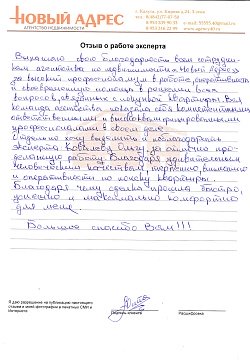 НОВЫЙ АДРЕС
АГЕНТСТВО НЕДВИЖИМОСТИ
Отзыв о работе эксперта
Выражаю свою благодарность всем сотрудни-
кам агентства по недвижимости «Новый Адрес»
за высокий профессионализм в работе, оперативность
и своевременную помощь в решении всех
вопросов, связанных с покупкой квартиры. Вся
команда агентства показала себя компетентными,
ответственными и высококвалифицированными
профессионалами в своём деле.
Отдельно хочу выделить и поблагодарить
эксперта Ковалеву Ольгу, за отлично про-
деланную работу. Благодаря удивительным
человеческим качествам, терпению, вниманию
и оперативности по поиску квартиры.
Благодаря чему сделка прошла быстро,
успешно и максимально комфортно
для меня.
Большое спасибо Вам!!!
Я даю разрешение на публикацию настоящего
отзыва и моей фотографии в печатных СМИ и
Интернете
Подпись клиента
Расшифровка